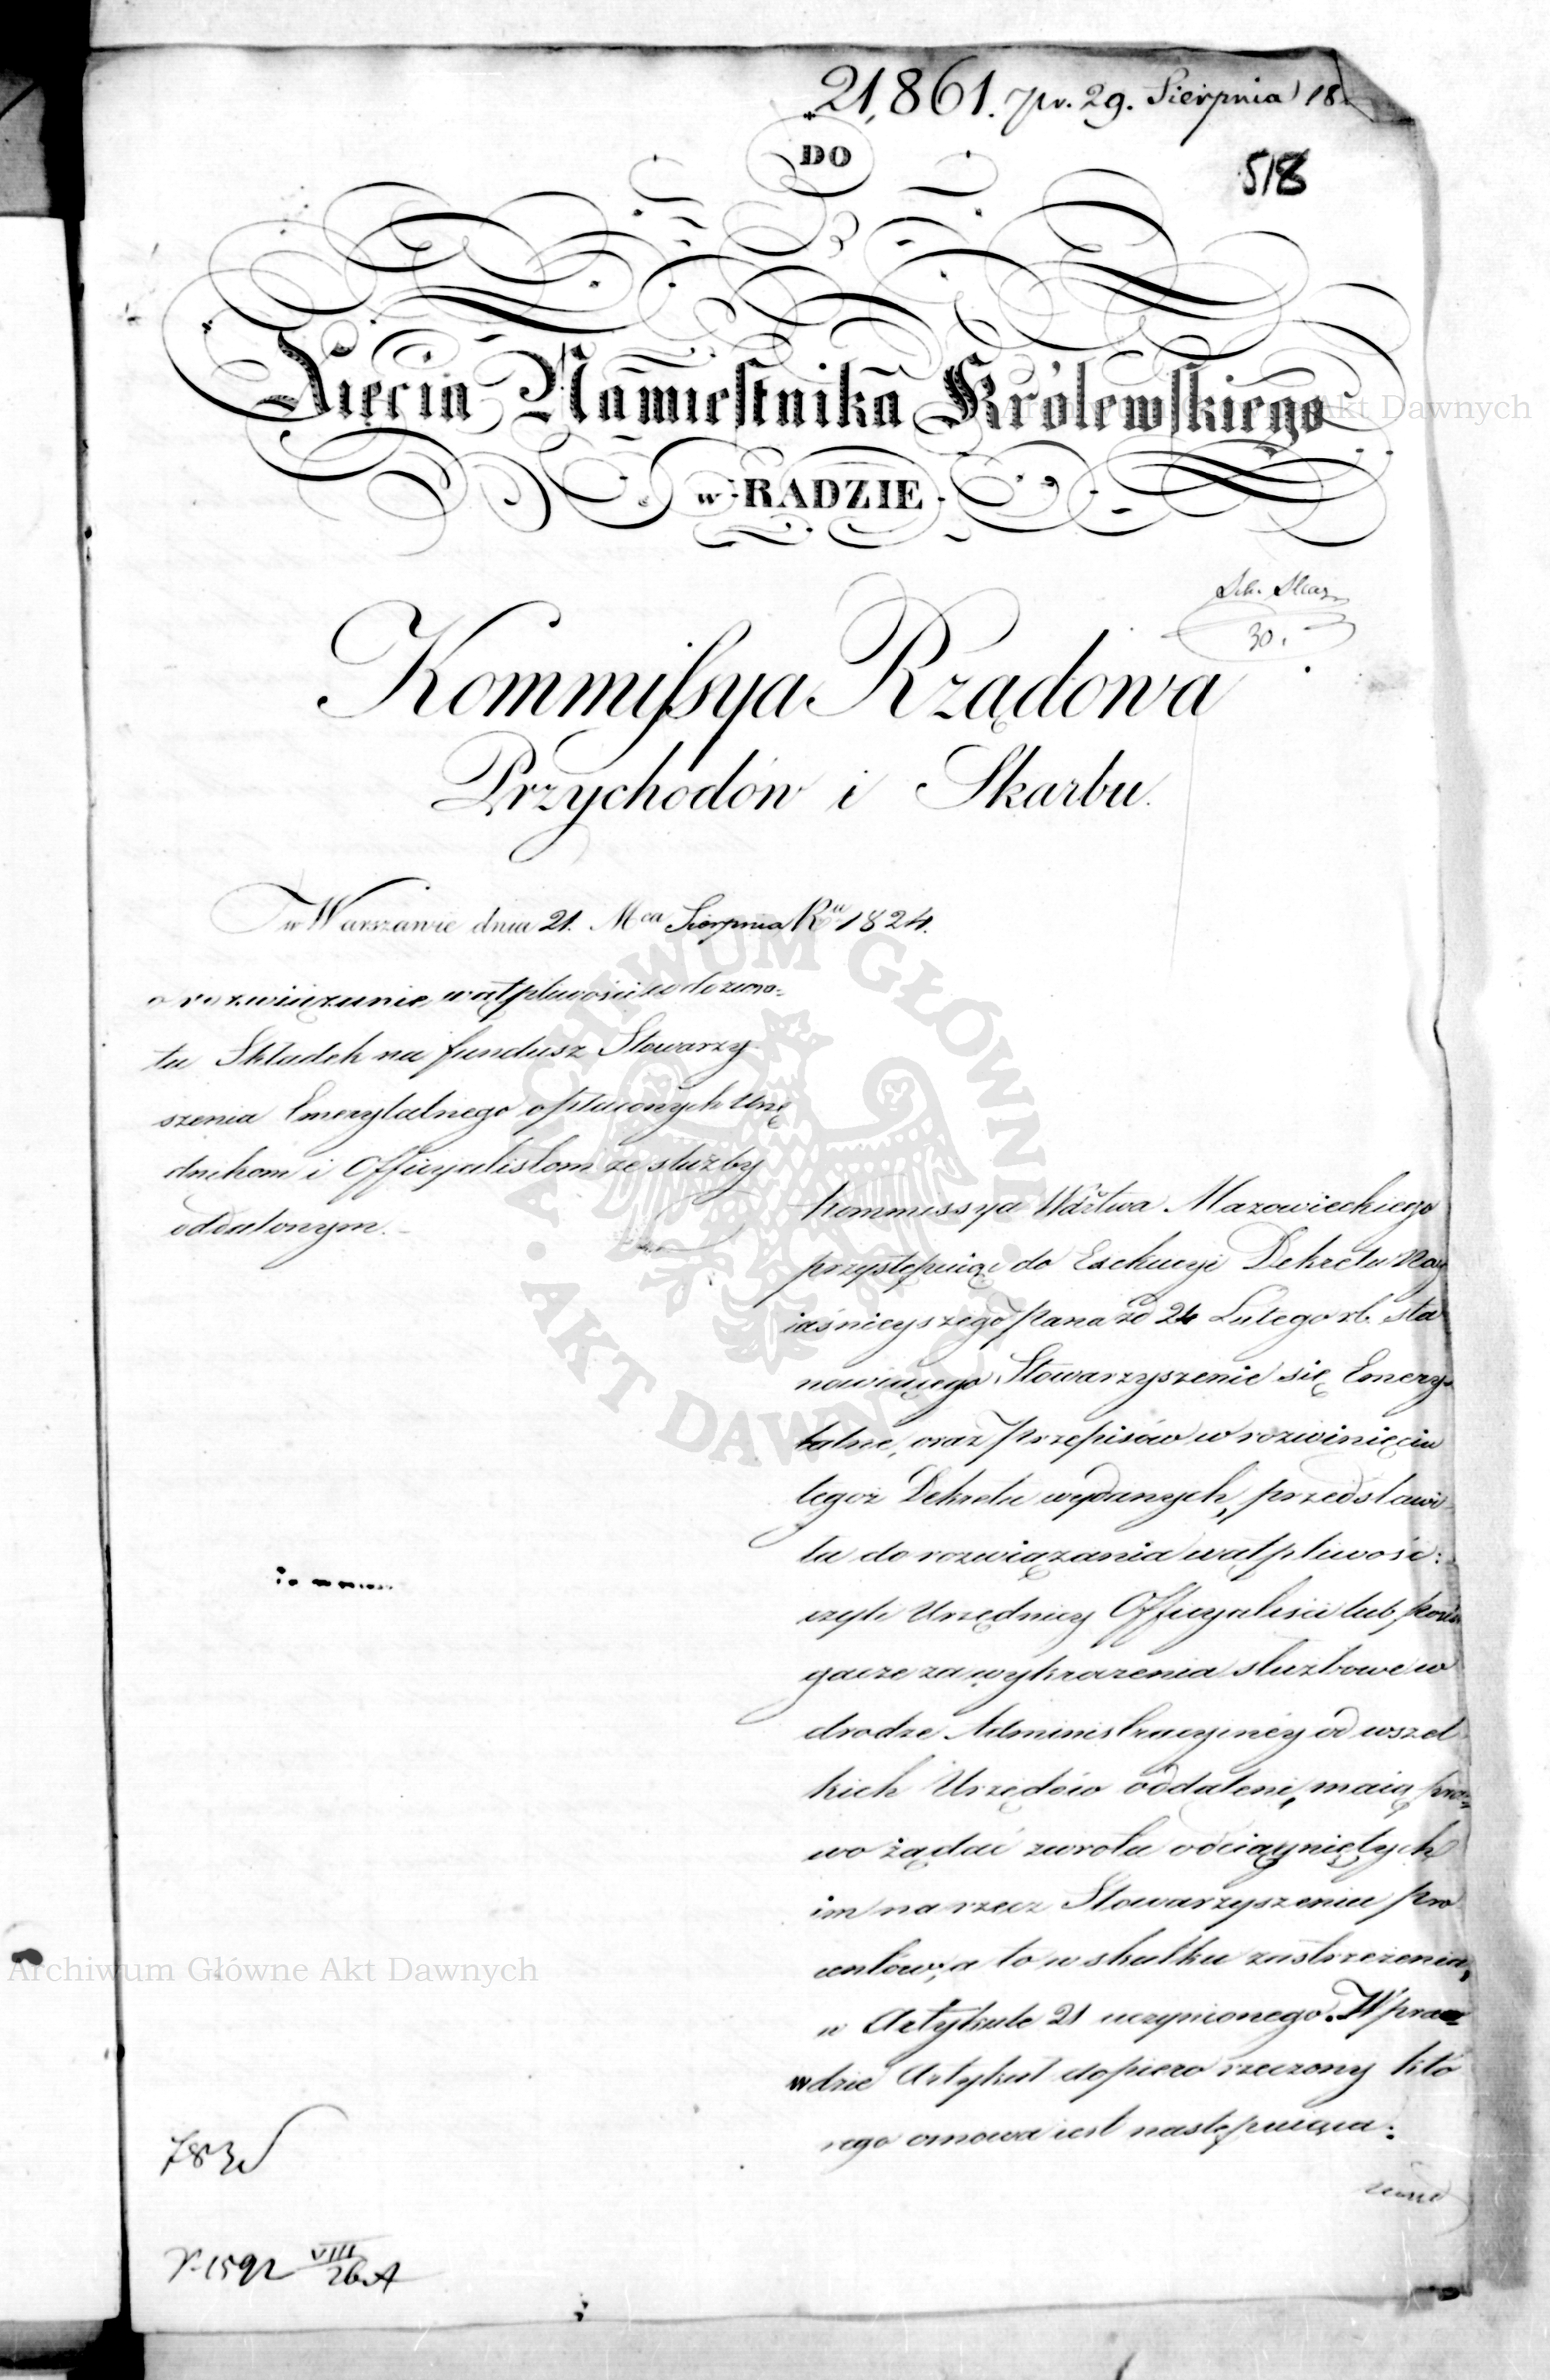 21,861. pr. 29. Sierpnia 18
518
DO
Xięcia Namiestnika Królewskiego
w RADZIE
30.
Kommissya Rządowa
Przychodów i Skarbu.
w Warszawie dnia 21. Mca Sierpnia Ru 1824.
o rozwiązanie wątpliwości co do zwro-
tu Składek na fundusz Stowarzy-
szenia Emerytalnego opłaconych Urzę
dnikom i Officyalistom ze służby
oddalonym.
Kommissya Wdztwa Mazowieckiego
przystępuiąc do Exekucyi Dekretu Nay
iaśnieyszego Pana z d 24 Lutego r.b. sta
nowiącego Stowarzyszenie się Emery-
talne, oraz Przepisów w rozwinięciu
tegoż Dekretu wydanych, przedstawi-
ła do rozwiązania wątpliwość:
czyli Urzędnicy Officyaliści lub Posłu
gacze za wykroczenia służbowe w
drodze Administracyinéy od wszel
kich Urzędów oddaleni, maią pra-
wo żądać zwrotu ściągniętych
im na rzecz Stowarzyszenia pro
centów, a to w skutku zastrzeżenia,
w Artykule 21 uczynionego. Wpraw-
wdzie Artykuł dopiero rzeczony któ
rego osnowa iest następuiąca:
783
N. 1592 VIII/26.A
Archiwum Główne Akt Dawnych
ARCHIWUM GŁÓWNE AKT DAWNYCH
Akt Dawnych